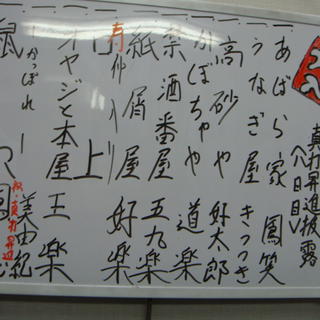 真打昇進披露
八日目
あばら家 鳳笑
うなぎ屋 きつつき
高砂や 好太郎
かぼちゃや 道楽
禁酒番屋 五九楽
紙屑屋 好楽
仲入り
口上
オヤジと本屋 王楽
かっぽれ 美由紀
鼠